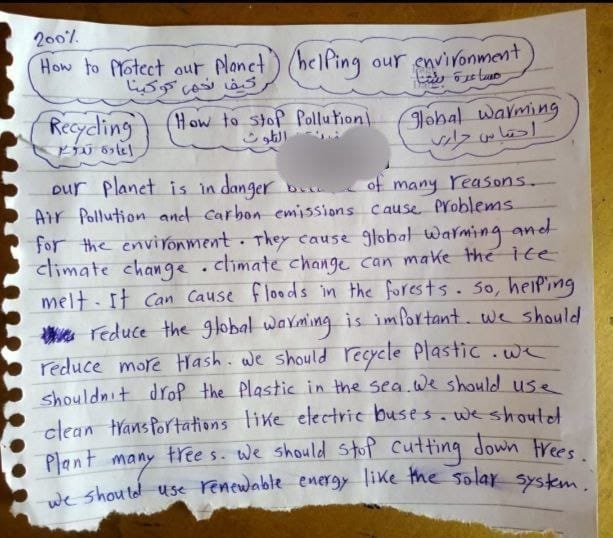 200%
How to Protect our Planet
كيف نحمي كوكبنا
helping our environment
مساعدة بيئتنا
Recycling
اعادة تدوير
How to stop Pollution
التلوث
global warming
احتباس حراري
our Planet is in danger of many reasons.
Air Pollution and carbon emissions cause Problems
for the environment. They cause global warming and
climate change. climate change can make the ice
melt. It can cause floods in the forests. so, helping
reduce the global warming is important. we should
reduce more trash. we should recycle Plastic. we
shouldn't drop the Plastic in the sea. we should use
clean transportations like electric buses. we should
Plant many trees. we should stop cutting down trees.
we should use renewable energy like the solar system.